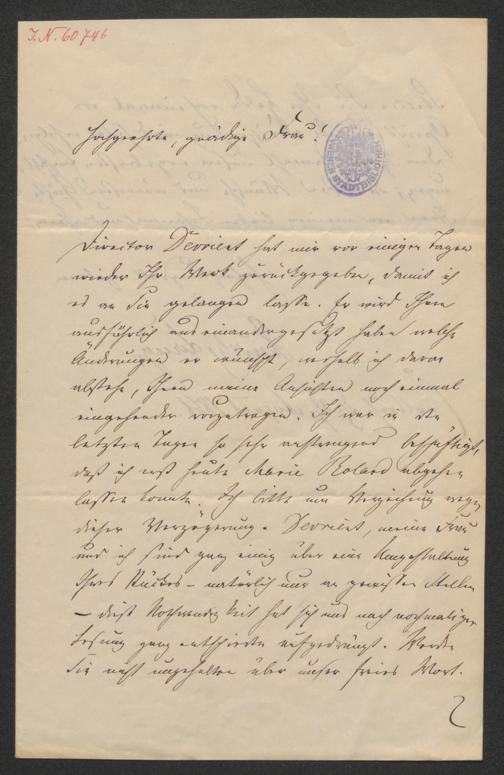 I.N. 60746
Hochgeehrte, gnädige Frau!
STADTBIBLIOTHEK
Director Devrient hat mir vor einigen Tagen
wieder Ihr Werk zurückgegeben, damit ich
es an Sie gelangen lasse. Er wird Ihnen
ausführlich auseinandergesetzt haben welche
Änderungen er wünscht weshalb ich davon
abstehe, Ihnen meine Ansichten noch einmal
eingehender vorzutragen. Ich war in den
letzten Tagen so sehr anstrengend beschäftigt,
daß ich erst heute Marie Roland abgehen
lassen konnte. Ich bitte um Verzeihung wegen
dieser Verzögerung. Devrient, meine Frau
und ich sind ganz einig über eine Umgestaltung
Ihres Stückes – natürlich nur an gewissen Stellen
– diese Nothwendigkeit hat sich uns nach nochmaliger
Lesung ganz entschieden aufgedrängt. Werden
Sie nicht ungehalten über unser freies Wort.